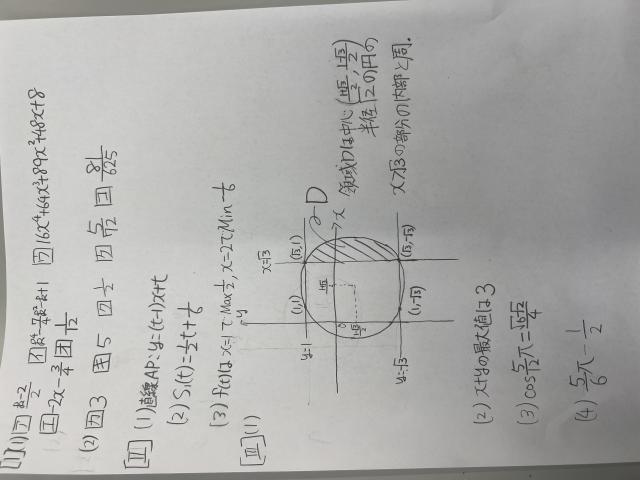 [I](1) ア (k-2)/2 イ k²/4-k²/4-k+1 ウ 16x⁴+64x³+89x²+48x+8
エ -2x-3/4 オ 1/12
(2) カ 3 キ 5 ク 1/2 ケ 5/12 コ 81/625
[II] (1) 直線AP: y=(t-1)x+t
(2) S₁(t)=1/2t+1/6
(3) f(t)はx=1でMax1/2, x=2でMin-1/6
[III](1)
y
x=√3
y=1
(1,1)
(√3,1)
D
x
0
(1,-√3)
(√3,-√3)
y=-√3
領域Dは中心(1+√3/2, 1-√3/2)
半径√2の円の
x>√3の部分の内部と周.
(2) x+yの最大値は3
(3) cos5/12π=√6-√2/4
(4) 5/6π-1/2